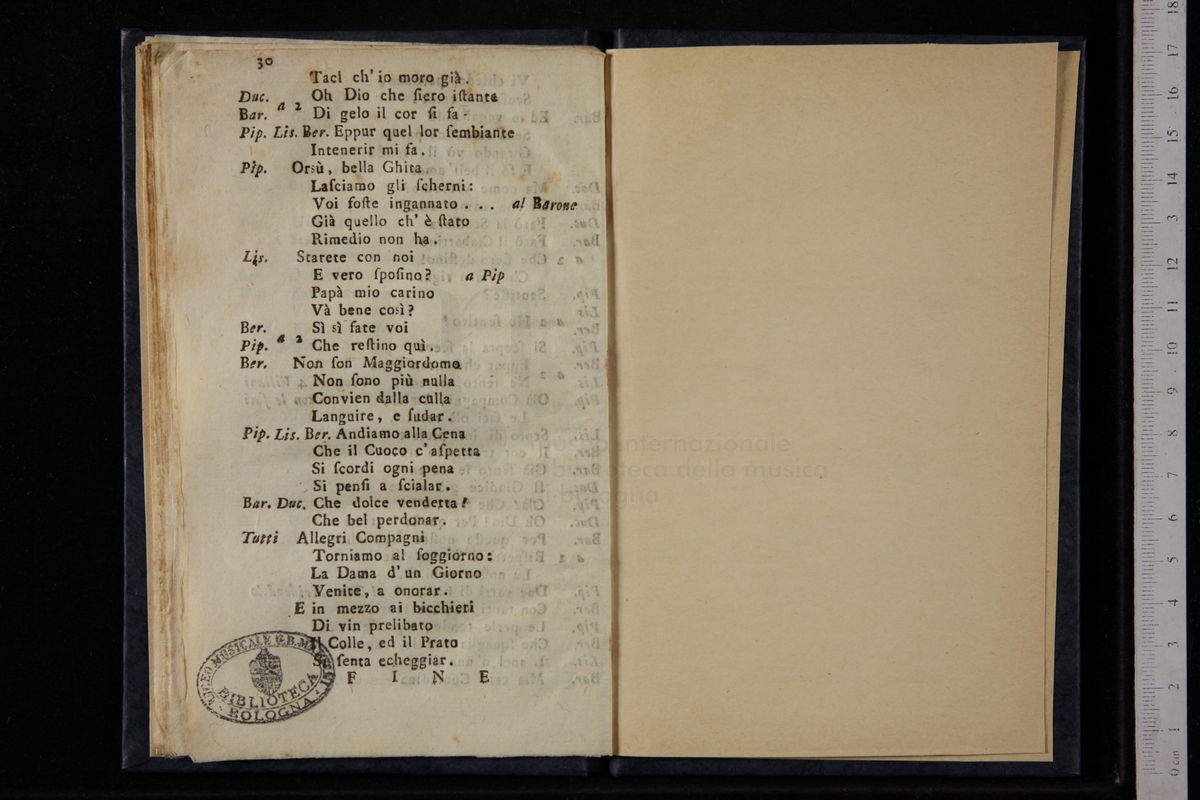 30
Taci ch' io moro già.
Duc. Oh Dio che fiero iſtante
a 2
Bar. Di gelo il cor ſi fa.
Pip. Lis. Ber. Eppur quel lor ſembiante
Intenerir mi fa.
Pip. Orsù, bella Ghita
Laſciamo gli ſcherni:
Voi foſte ingannato . . . al Barone
Già quello ch' è ſtato
Rimedio non ha.
Lis. Starete con noi
E vero ſpoſino? a Pip
Papà mio carino
Và bene così?
Ber. Sì sì fate voi
a 2
Pip. Che reſtino quì.
Ber. Non ſon Maggiordomo
Non ſono più nulla
Convien dalla culla
Languire, e ſudar.
Pip. Lis. Ber. Andiamo alla Cena
Che il Cuoco c' aſpetta
Si ſcordi ogni pena
Si penſi a ſcialar.
Bar. Duc. Che dolce vendetta!
Che bel perdonar.
Tutti Allegri Compagni
Torniamo al ſoggiorno:
La Dama d' un Giorno
Venite, a onorar.
E in mezzo ai bicchieri
Di vin prelibato
Il Colle, ed il Prato
Si ſenta echeggiar.
F I N E
LICEO MUSICALE G. B. MARTINI
BIBLIOTECA
BOLOGNA
museo internazionale
e biblioteca della musica
di bologna
0 cm 1 2 3 4 5 6 7 8 9 10 11 12 13 14 15 16 17 18